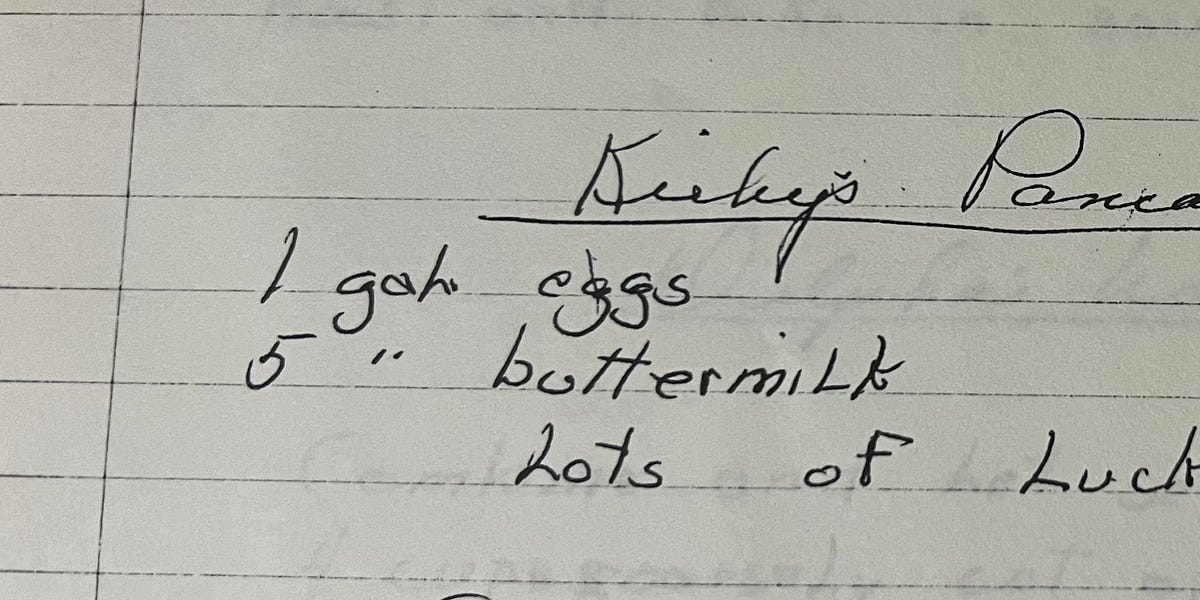 Ricky's Panca
1 gal. eggs
5 " buttermiLk
Lots of Luck